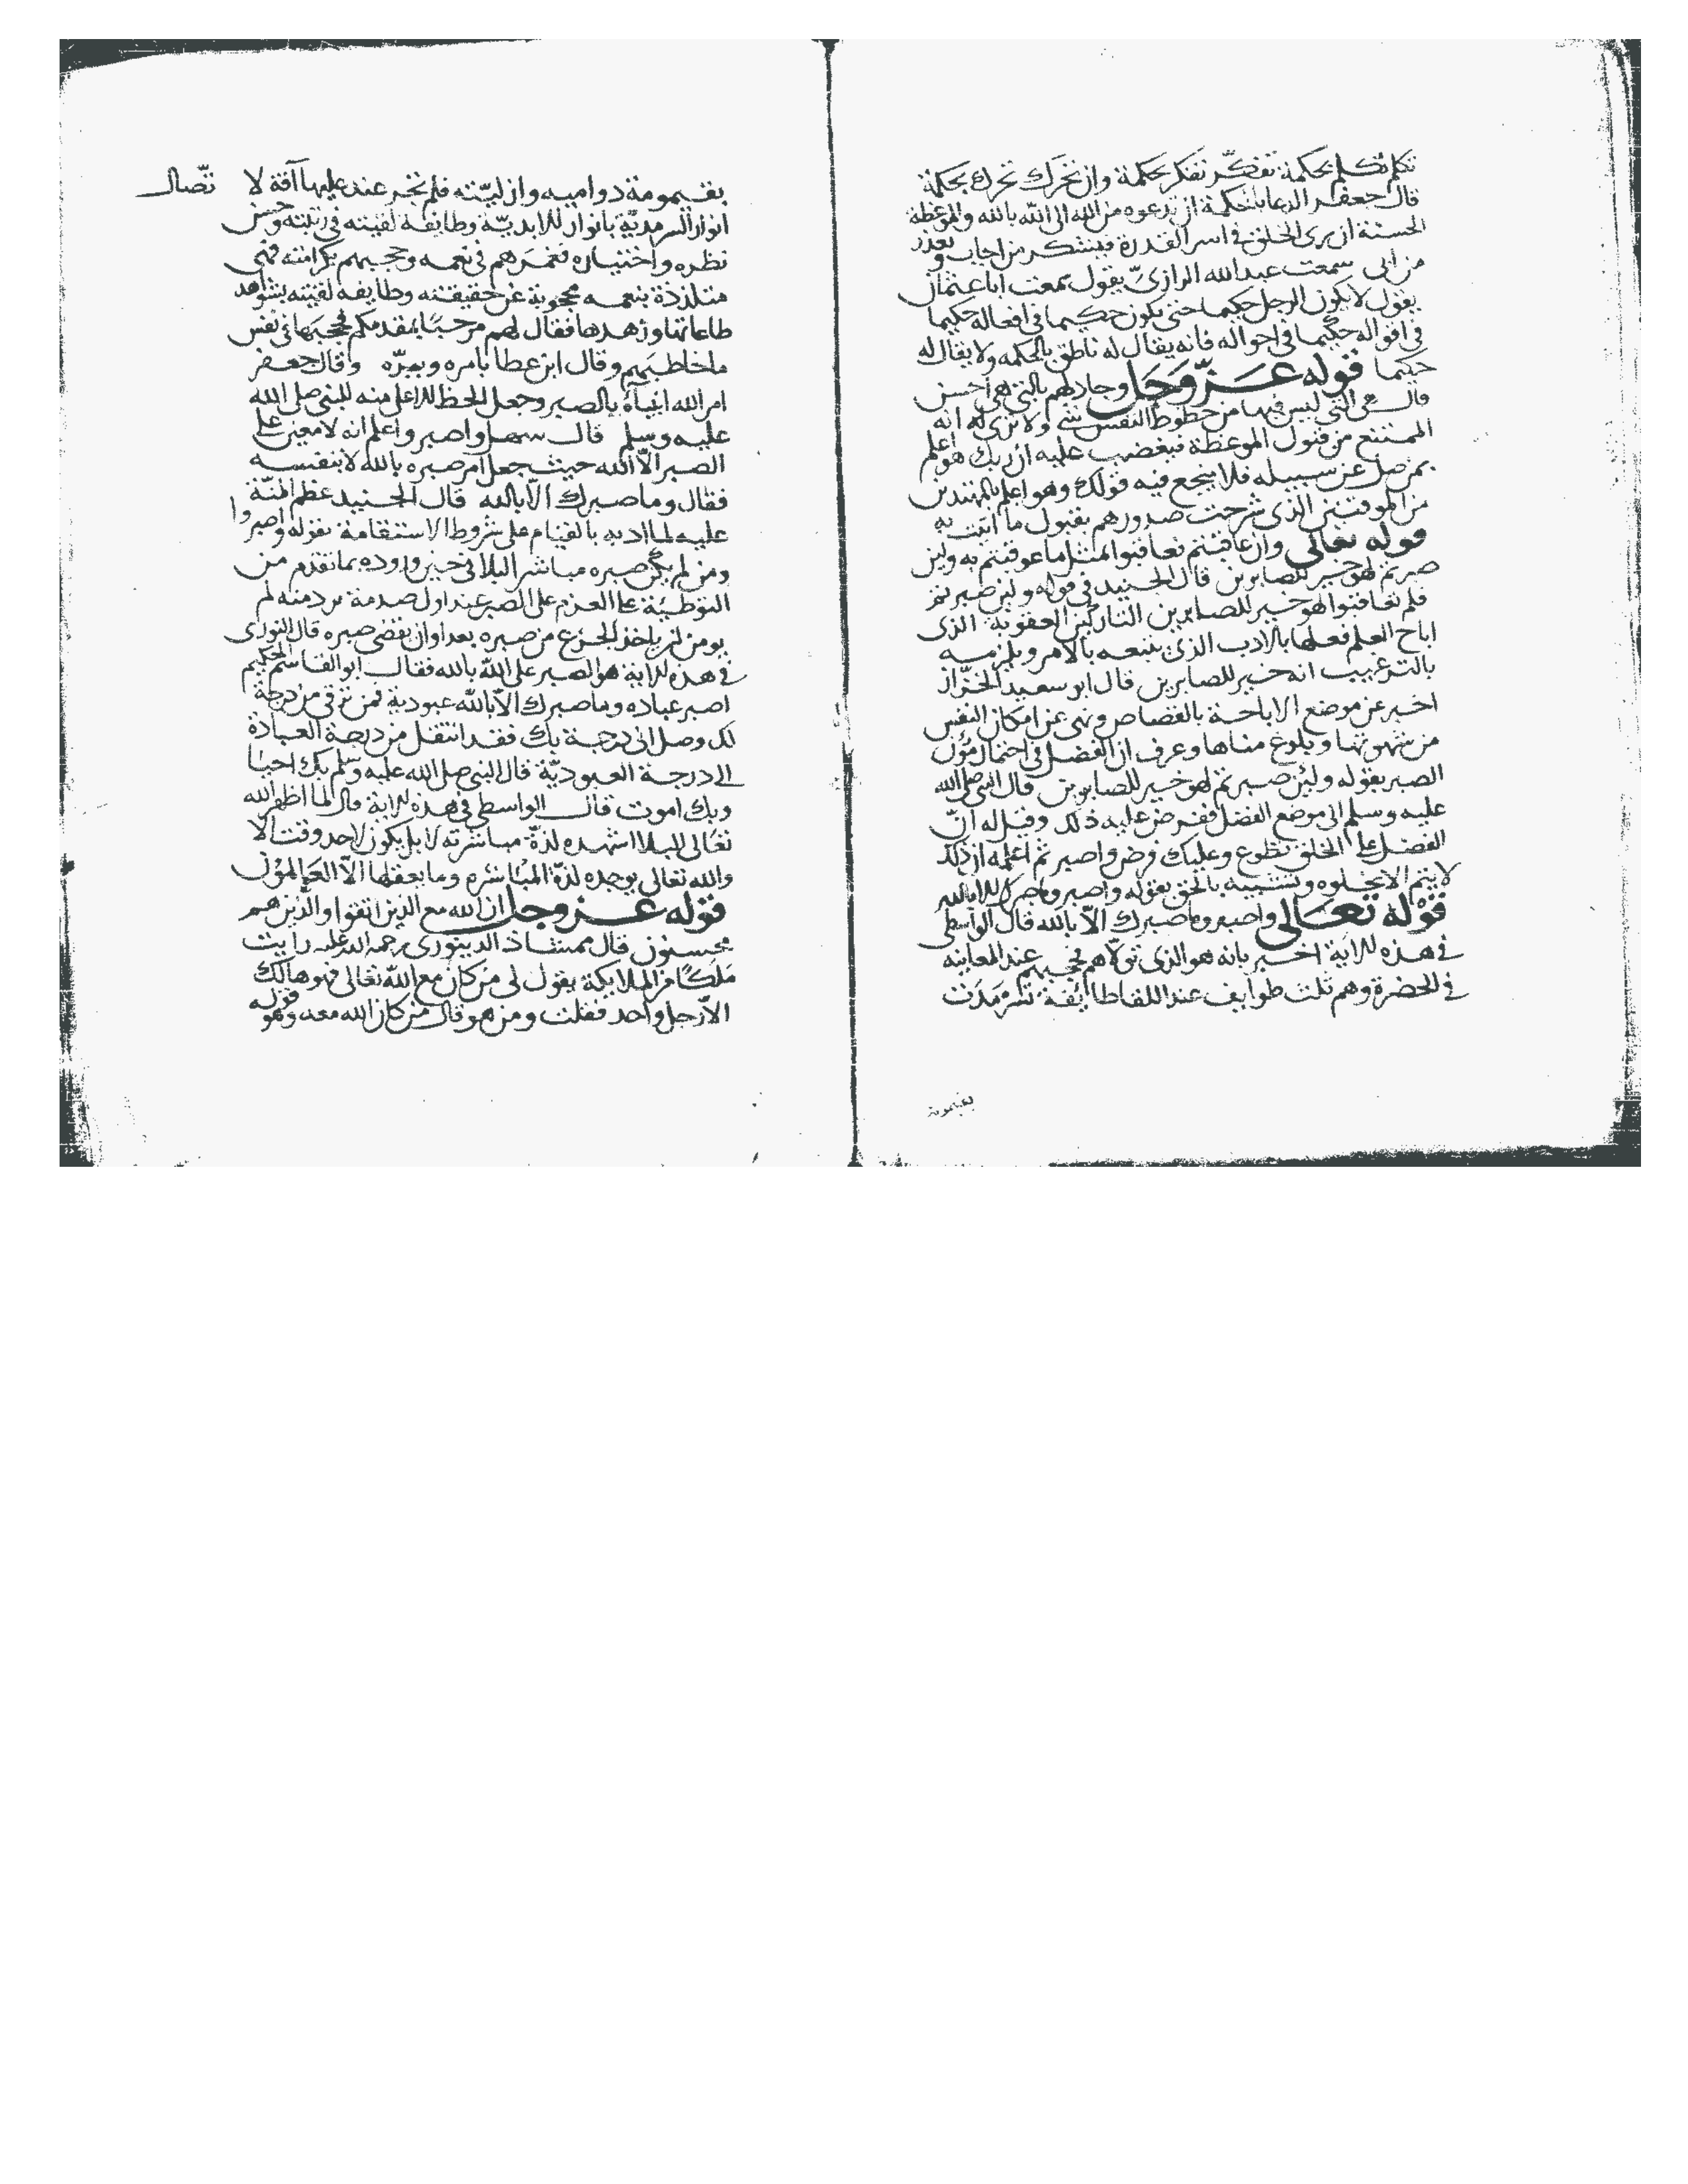 تكلم تكلم بحكمة تفكّر تفكر بحكمة وان تحرك تحرك بحكمة
قال جعفر الدعا بالحكمة ان تدعوه من الله الى الله بالله والموعظة
الحسنة ان يرى الخلق فى اسر القدرة فيشكر من اجاب ويعذر
من ابى سمعت عبد الله الرازىّ يقول سمعت ابا عثمان
يقول لا يكون الرجل حكيما حتى يكون حكيما فى افعاله حكيما
فى اقواله حكيما فى احواله فانه يقال له ناطق بالحكمه ولا يقال له
حكيما قوله عزّ وَجَل وجادلهم بالتى هى احسن
قال هى التى ليس فيها من حظوظ النفس شى ولا ترى له انه
الممتنع من قبول الموعظة فيغضب عليه ان ربك هو اعلم
بمن ضل عن سبيله فلا ينجع فيه قولك وهو اعلم بالمهتدين
من الموفقين الذى شرحت صدورهم بقبول ما اتيت به
قوله تعالى وان عاقبتم فعاقبوا بمثل ما عوقبتم به ولين
صبرتم لهو خير للصابرين قال الجنيد فى قوله ولين صبرتم
فلم تعاقبوا لهو خير للصابرين التاركين العقوبة الذى
اباح العلم فعلها بالادب الذى يتبعه بالامر ويلزمه
بالترغيب انه خير للصابرين قال ابو سعيد الخرّاز
اخبر عن موضع الاباحة بالقصاص ونهى عن امكان النفس
من شهوتها وبلوغ مناها وعرف ان الفضل فى احتمال مؤن
الصبر بقوله ولين صبرتم لهو خير للصابرين قال النبى صلى الله
عليه وسلم الى موضع الفضل ففرض عليه ذلك وقيل له انّ
الفضل على الخلق تطوع وعليك فرض واصبر ثم اعلمه ان ذلك
لا يتم الا بخلوه وتشبيه بالحق بقوله واصبر وما صبرك الا بالله
قوله تعالى واصبر وما صبرك الاّ بالله قال الواسطى
فى هذه الاية اخبر بانه هو الذى تولاّهم فحجبهم عند المعاينه
فى الحضرة وهم ثلث طوايف عند اللقا طايفة تسرمَدَت
بقيمومة
بقيمومة دواميه وازليّته فلم تجر عند عليها آفة لا تّصال
انوار السرمديّة بانوار الابديّة وطايفة لقيته فى زينته وحسن
نظره واختياره فغمرهم فى نعمه وحجبهم بكرامته فهى
متلذذة بنعمه محجوبة عن حقيقته وطايفه لقيته بشواهد
طاعاتها وزهدها فقال لهم مرحبًا بمقدمكم فحجبها فى نفس
ما خاطبهم وقال ابن عطا بامره وببرّه وقال جعفر
امر الله انبيآءَ بالصبر وجعل الحظ الاعلى منه للنبى صلى الله
عليه وسلم قال سهل واصبر واعلم انه لا معين على
الصبر الاّ الله حيث جعل امر صبره بالله لا بنفسه
فقال وما صبرك الاّ بالله قال الجنيد عظم المنّة
عليه لما ادبه بالقيام على شروط الاستقامة بقوله واصبروا
ومن لم يكن صبره مباشر البلا فى حين وروده بما تقدم من
التوطية على العزم على الصبر عند اول صدمة تردمنه لم
يومن ان ياخذ الجزع من صبره بعد اوان تقضى صبره قال النورى
فى هذه الاية هو الصبر على الله بالله فقال ابو القاسم الحكيم
اصبر عباده وما صبرك الاّ بالله عبودية فمن ترقى من درجة
لك وصل الى درجة بك فقد انتقل من درجة العبادة
الى درجة العبوديّة قال النبى صلى الله عليه وسلم بك احيا
وبك اموت قال الواسطى فى هذه الاية قال لما اظهر الله
تعالى البلا اشهده لذة مباشرته لا بل يكون لاحد وقت الا
والله تعالى يوجده لذة المباشره وما يعقلها الاّ العالمون
قوله عز وجل ان الله مع الذين اتقوا والذين هم
محسنون قال ممشاذ الدينورى رحمة الله عليه رايت
مَلكًا من الملايكة يقول لى من كان مع الله تعالى فهو هالك
الاّ رجل واحد فقلت ومن هو قال من كان الله معه وهو قوله